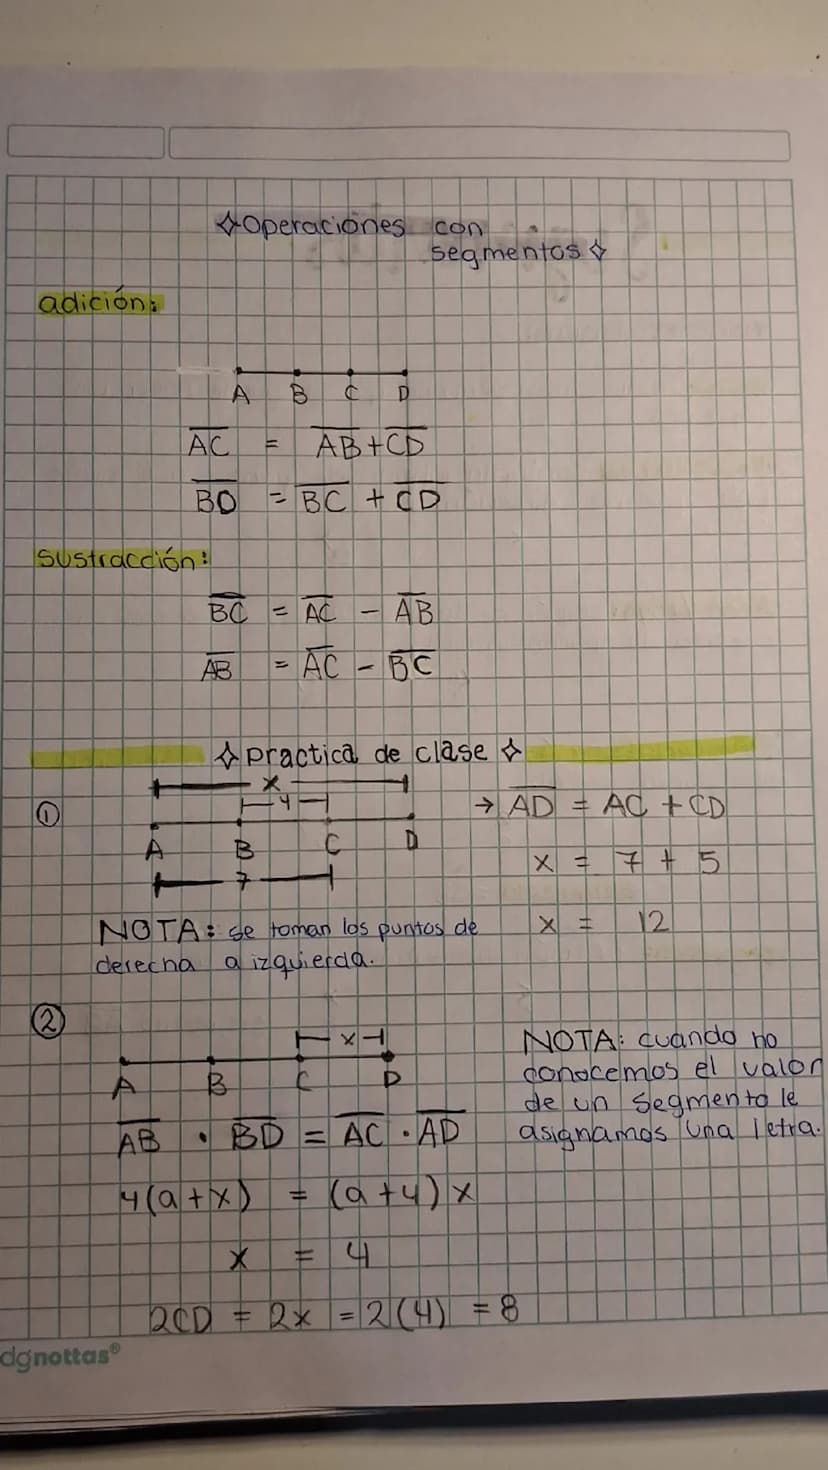 ✧Operaciones con
segmentos✧
adición:
A B C D
AC = AB+CD
BD = BC + CD
sustracción:
BC = AC - AB
AB = AC - BC
✧practica de clase✧
①
x
4
A B C D
7
→ AD = AC + CD
x = 7 + 5
x = 12
NOTA: se toman los puntos de
derecha a izquierda.
②
x
A B C D
NOTA: cuando no
conocemos el valor
de un segmento le
asignamos una letra.
AB · BD = AC · AD
4(a+x) = (a+4)x
x = 4
2CD = 2x = 2(4) = 8
dgnottas®